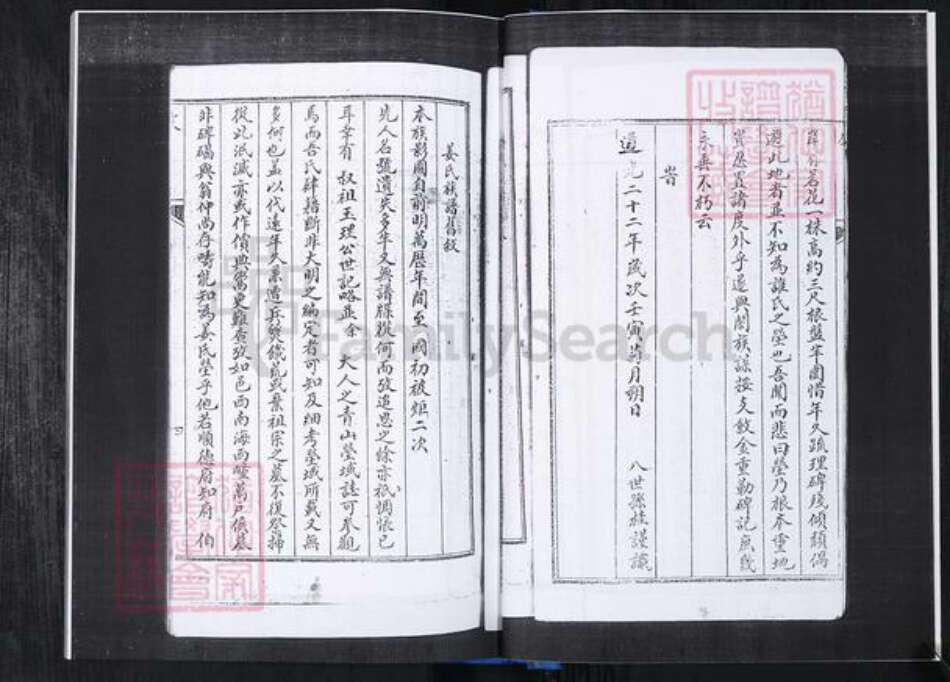 岸有若花一株高約三尺根盤半園惜年久疏理碑殘傾頹偶
遊此地者並不知為誰氏之塋也吾聞而悲曰塋乃根本重地
豈忍置諸度外乎遂與閤族謀按支斂金重勒碑記庶幾
永垂不朽云
峕
道光二十二年歲次壬寅菊月朔日 八世孫桂謹識
姜氏族譜舊敘
本族影圖自前明萬歷年間至國初被炬二次
先人名號遺失多年又無譜牒從何而攷追思之餘亦祇惆悵已
耳幸有 叔祖玉理公世記略並余 大人之青山塋域誌可參觀
焉而吾氏肆籍斷非大明之編定者可知及細考塋域所載又無
多何也盖以代遠年久累遭兵燹饑荒致棄祖宗之墓不復祭掃
從此泯滅亦或作價典鬻更難查攷如邑西南海西疃萬戶侯墓
非碑碣與翁仲尚存疇能知為姜氏塋乎他若順德府知府 伯
FamilySearch